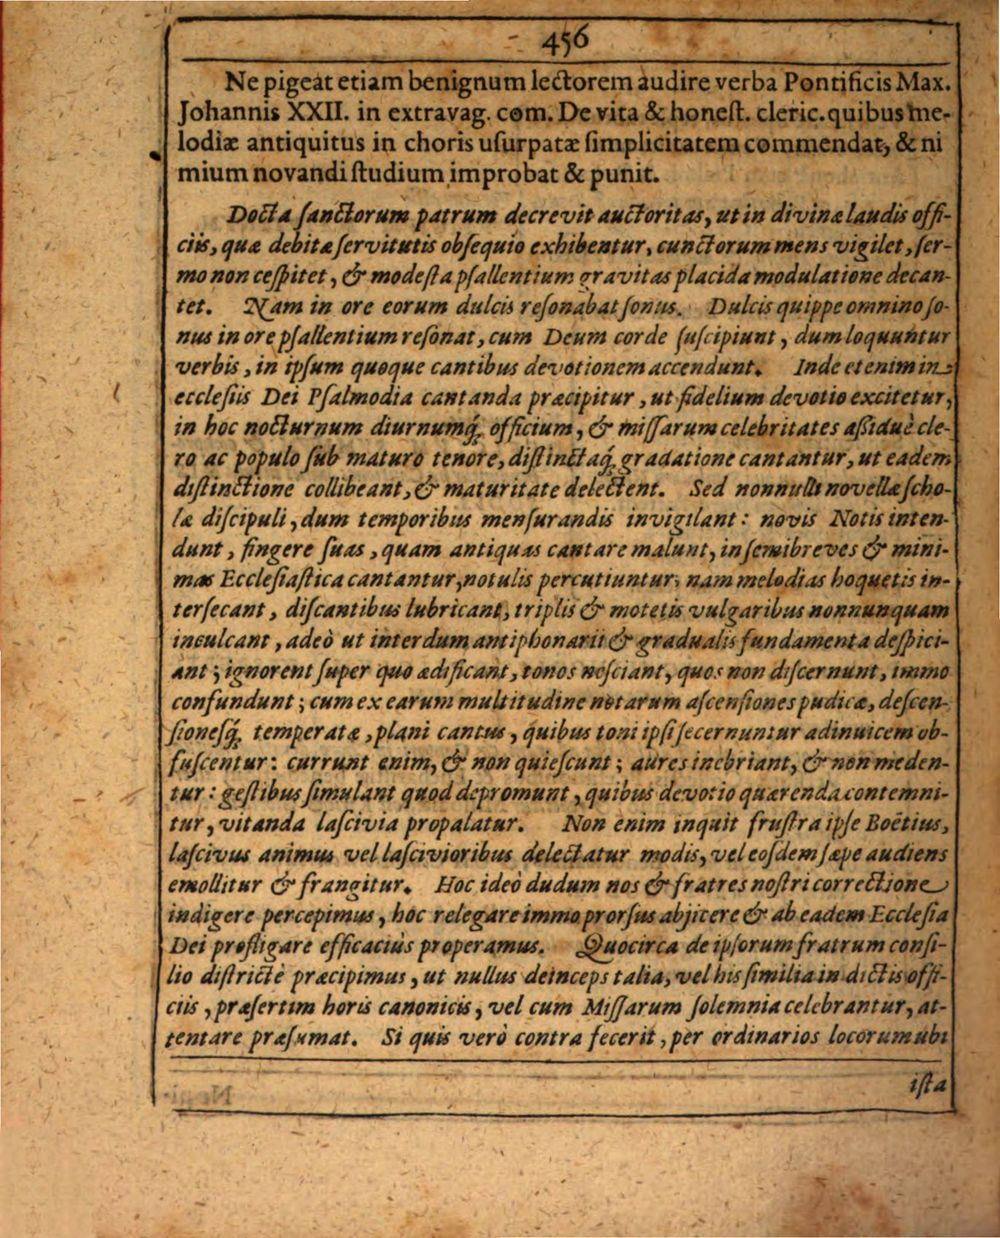 456
Ne pigeat etiam benignum lectorem audire verba Pontificis Max.
Johannis XXII. in extravag. com. De vita & honeſt. cleric. quibus me-
lodiæ antiquitus in choris uſurpatæ ſimplicitatem commendat, & ni
mium novandi ſtudium improbat & punit.
Docta ſanctorum patrum decrevit auctoritas, ut in divinæ laudis offi-
ciis, quæ debitæ ſervitutis obſequio exhibentur, cunctorum mens vigilet, ſer-
mo non ceſpitet, & modeſta pſallentium gravitas placida modulatione decan-
tet. Nam in ore eorum dulcis reſonabat ſonus. Dulcis quippe omnino ſo-
nus in ore pſallentium reſonat, cum Deum corde ſuſcipiunt, dum loquuntur
verbis, in ipſum quoque cantibus devotionem accendunt. Inde etenim in
eccleſiis Dei Pſalmodia cantanda præcipitur, ut fidelium devotio excitetur,
in hoc nocturnum diurnumq́; officium, & miſſarum celebritates aßiduè cle-
ro ac populo ſub maturo tenore, diſtinctaq́; gradatione cantantur, ut eadem
diſtinctione collibeant, & maturitate delectent. Sed nonnulli novellæ ſcho-
læ diſcipuli, dum temporibus menſurandis invigilant: novis Notis inten-
dunt, fingere ſuas, quam antiquas cantare malunt, in ſemibreves & mini-
mas Eccleſiaſtica cantantur, notulis percutiuntur; nam melodias hoquetis in-
terſecant, diſcantibus lubricant, triplis & motetis vulgaribus nonnunquam
inculcant, adeò ut interdum antiphonarii & gradualis fundamenta deſpici-
ant; ignorent ſuper quo ædificant, tonos neſciant, quos non diſcernunt, immo
confundunt; cum ex earum multitudine notarum aſcenſiones pudicæ, deſcen-
ſionesq́; temperatæ, plani cantus, quibus toni ipſi ſecernuntur adinuicem ob-
fuſcentur: currunt enim, & non quieſcunt; aures inebriant, & non meden-
tur: geſtibus ſimulant quod depromunt, quibus devotio quærenda contemni-
tur, vitanda laſcivia propalatur. Non enim inquit fruſtra ipſe Boëtius,
laſcivus animus vel laſcivioribus delectatur modis, vel eoſdem ſæpe audiens
emollitur & frangitur. Hoc ideò dudum nos & fratres noſtri correctione
indigere percepimus, hoc relegare immo prorſus abjicere & ab eadem Eccleſia
Dei profligare efficaciùs properamus. Quocirca de ipſorum fratrum conſi-
lio diſtrictè præcipimus, ut nullus deinceps talia, vel his ſimilia in dictis offi-
ciis, præſertim horis canonicis, vel cum Miſſarum ſolemnia celebrantur, at-
tentare præſumat. Si quis verò contra fecerit, per ordinarios locorum ubi
iſta